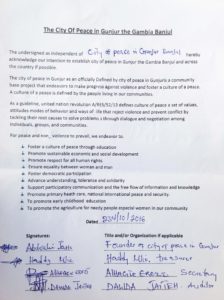 The City Of Peace in Gunjur the Gambia Banjul
The undersigned as independent of City of peace in Gunjur Banjul hereby
acknowledge our intention to establish city of peace in Gunjur the Gambia Banjul and across
the country if possible.
The city of peace in Gunjur as an officially Defined by city of peace in Gunjur is a community
base project that endeavors to make progress against violence and foster a culture of peace.
A culture of peace is defined by the people living in our communities.
As a guideline, united nation revolution A/RES/52/13 defines culture of peace a set of values,
attitudes modes of behavior and ways of life that reject violence and prevent conflict by
tackling their root causes to solve problems through dialogue and negotiation among
individuals, groups, and communities.
For peace and non_violence to prevail, we endeavor to.
Foster a culture of peace through education
Promote sustainable economic and social development
Promote respect for all human rights
Ensure equality between women and men
Foster democratic participation
Advance understanding, tolerance and solidarity
Support participatory communication and the free flow of information and knowledge
Promote primary health care, national international peace and security
To promote early childhood education
To promote the agriculture for needy people especial women in our community
Dated /10/2016
Signatures: Title and/or Organization if applicable
Founder city of peace in Gunjur
Haddy treasurer
Alhagie Secretary
Dawda Jatteh Dawda Jatteh Auditor